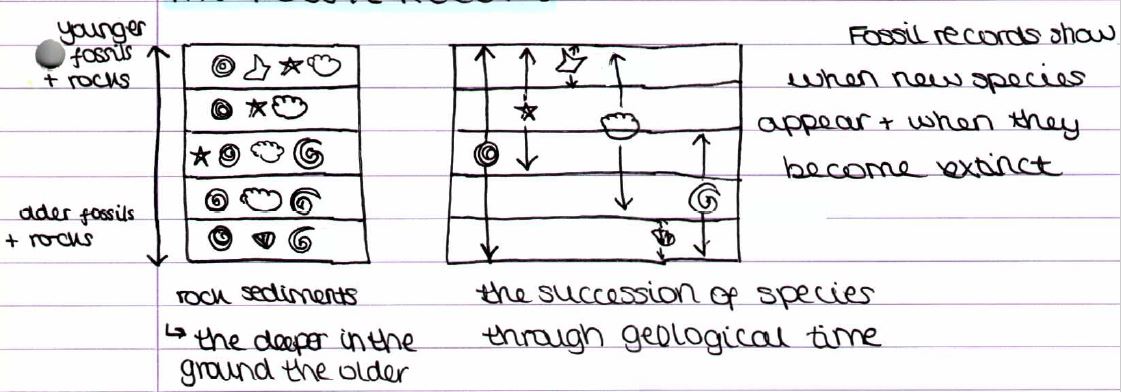 younger
fossils
+ rocks
older fossils
+ rocks
rock sediments
↳ the deeper in the
ground the older
the succession of species
through geological time
Fossil records show
when new species
appear + when they
become extinct